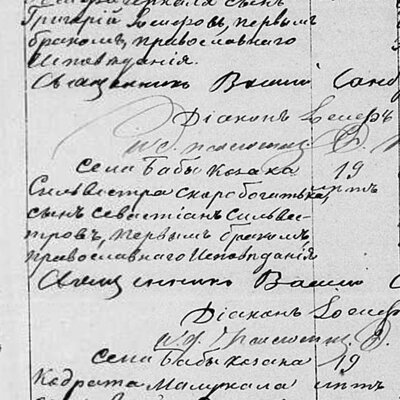 сынъ
Григорій Іосифовъ, первымъ
бракомъ, православнаго
Исповѣданія.
Священникъ Васил
Діаконъ Іосифъ
села Бабы козака 19
Сильвестра Скоробогатька, лѣтъ
сынъ Севастіанъ Сильвес-
тровъ, первымъ бракомъ,
православнаго Исповѣданія
Священникъ Васил
Діаконъ Іосиф
села Бабы козака 19
Кодрата лѣтъ